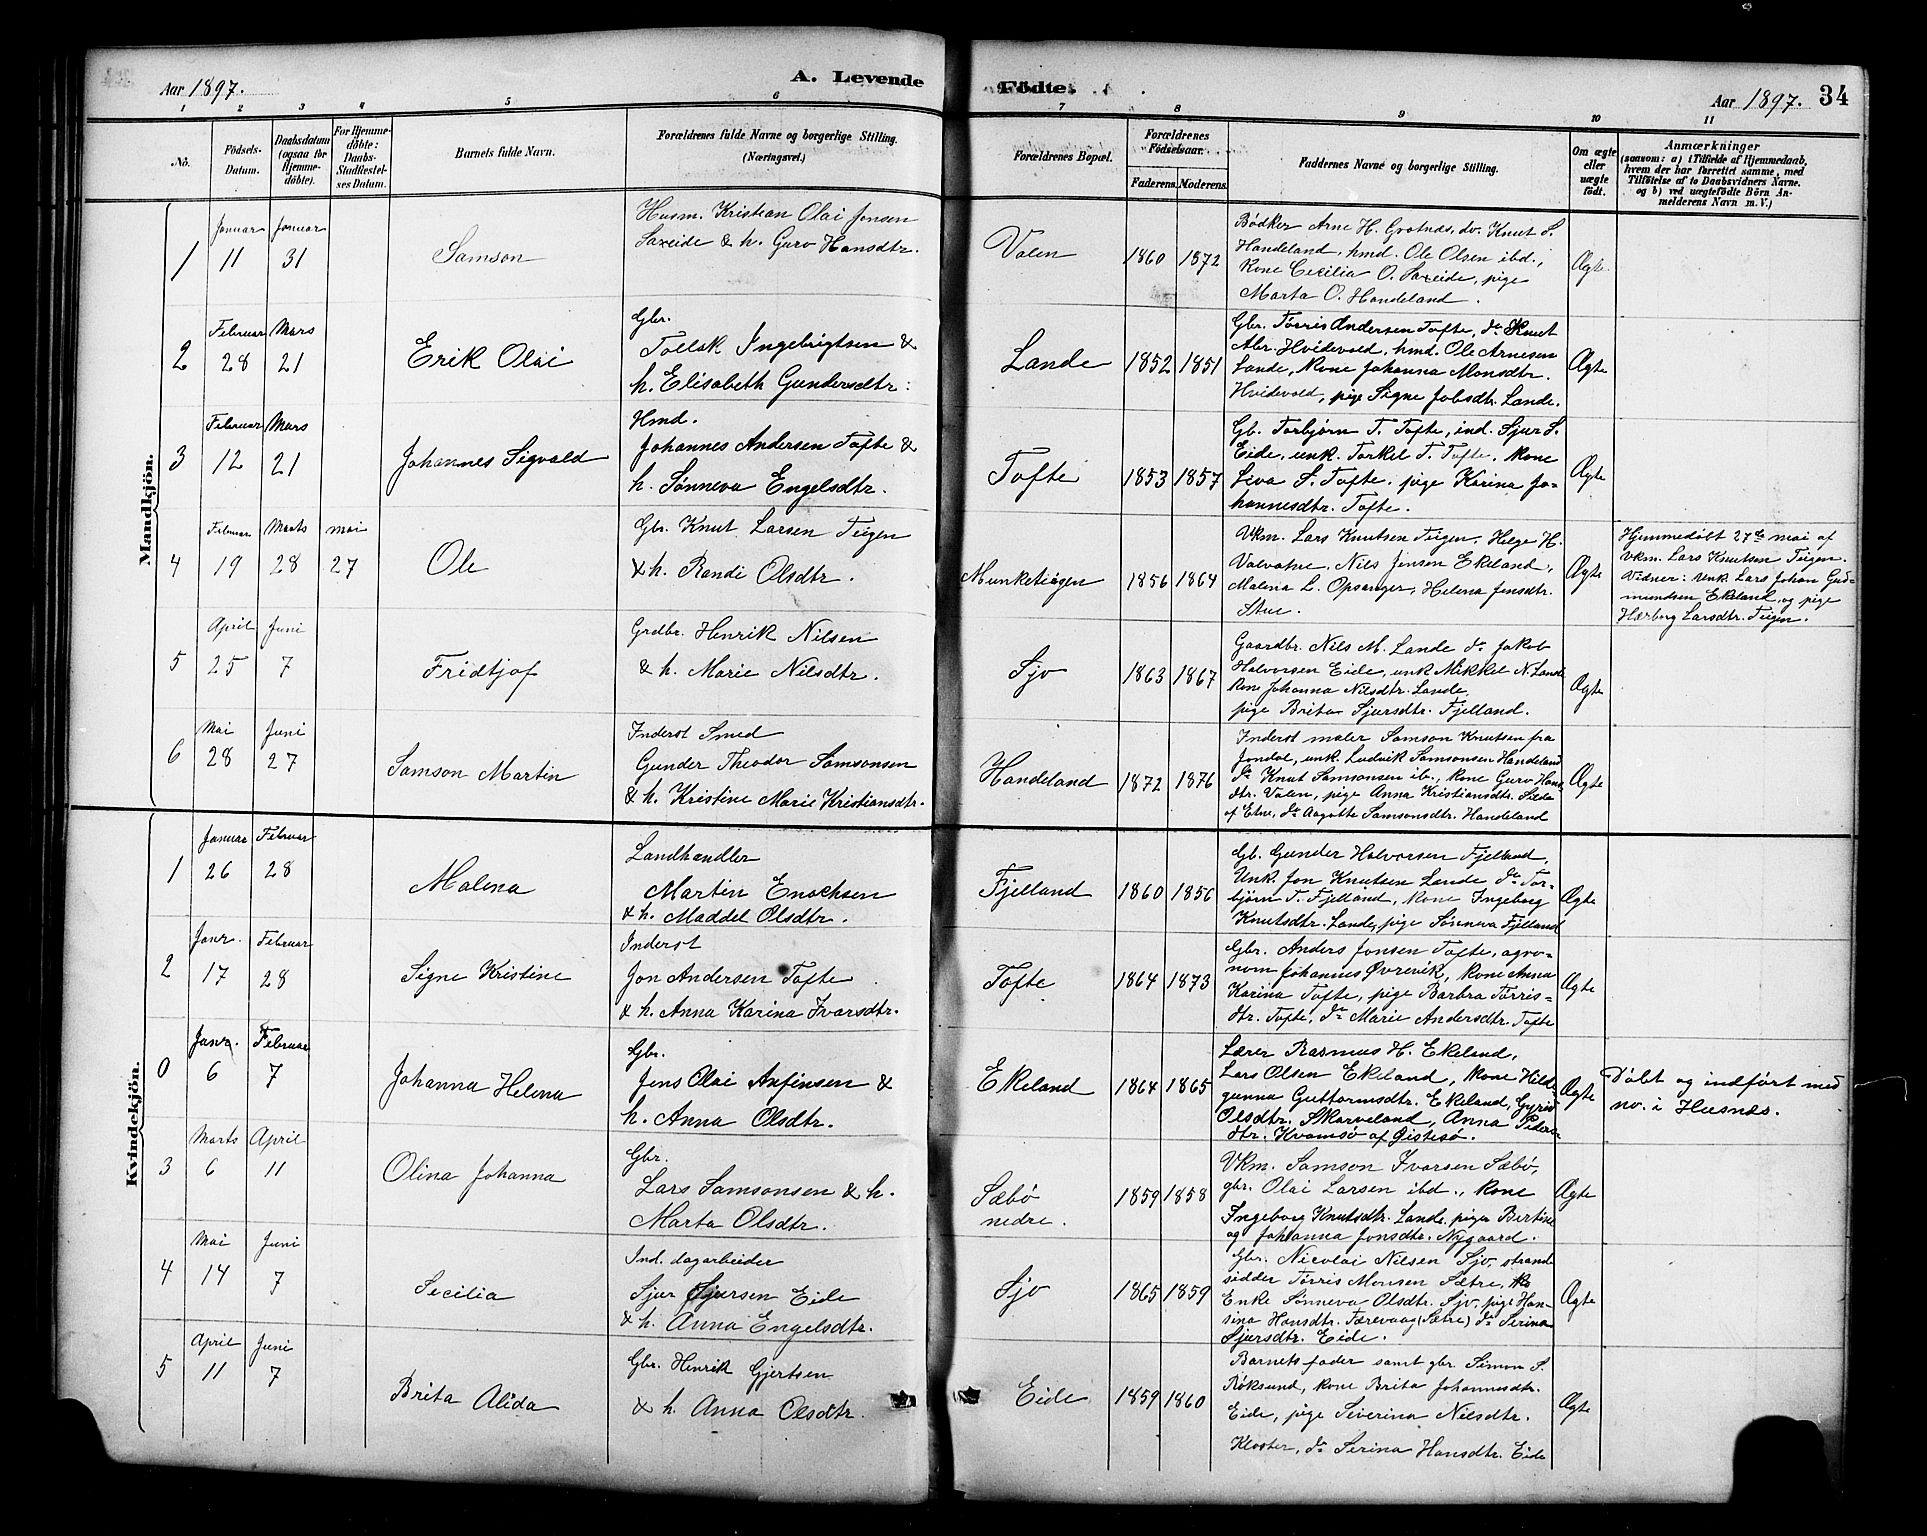 Aar 1897.
A. Levende
Födte.
Aar 1897.
34
1 2 3 4 5 6 7 8 9 10 11
No.
Födsels-
Datum.
Daabsdatum
(ogsaa for
Hjemme-
döbte).
For Hjemme-
döbte:
Daabs-
Stadfæstel-
ses Datum.
Barnets fulde Navn.
Forældrenes fulde Navne og borgerlige Stilling.
(Næringsvei.)
Forældrenes Bopæl.
Forældrenes
Födselsaar.
Faderens. Moderens.
Faddernes Navne og borgerlige Stilling.
Om ægte
eller
uægte
födt.
Anmærkninger
(saasom: a) i Tilfælde af Hjemmedaab,
hvem der har forrettet samme, med
Tilföielse af to Daabsvidners Navne.
og b) ved uægtefödte Börn An-
melderens Navn m. V.)
Mandkjön.
1
Januar Januar
11 31
Samson
Husm. Kristian Olai Jensen
Saxeide & h. Guro Hansdtr.
Valen
1860 1872
Bødker Arne H. Grotnæs, dv. Knut S.
Handeland, hmd. Ole Olsen ibd.,
Kone Cecilia O. Saxeide, pige
Marta O. Handeland.
Ægte
2
Februar Mars
28 21
Erik Olai
Gbr.
Tollak Ingebrigtsen &
h. Elisabeth Gundersdtr.
Lande
1852 1851
Gbr. Tørris Andersen Tofte, do Knut
Abr. Hvidevold, hmd. Ole Arnesen
Lande, Kone Johanna Monsdtr.
Hvidevold, pige Signe Jobsdtr. Lande.
Ægte
3
Februar Mars
12 21
Johannes Sigvald
Hmd.
Johannes Andersen Tofte &
h. Sønneva Engelsdtr.
Tofte
1853 1857
Gb. Torbjørn T. Tofte, ind. Sjur S.
Eide, unk. Torkel T. Tofte, Kone
Siva S. Tofte, pige Karina Jo-
hannesdtr. Tofte.
Ægte
4
Februar Marts mai
19 28 27
Ole
Gbr. Knut Larsen Teigen
& h. Randi Olsdtr.
Munketeigen
1856 1864
Vkm. Lars Knutsen Teigen, Helge H.
Valvatne, Nils Jensen Ekeland,
Malena L. Opsanger, Helena Jensdtr.
Stue.
Ægte
Hjemmedøbt 27de mai af
vkm. Lars Knutsen Teigen.
Vidner: Unk. Lars Johan Gud-
mundsen Ekeland, og pige
Hærborg Larsdtr. Teigen.
5
April Juni
25 7
Fridtjof
Grdbr. Henrik Nilsen
& h. Marie Nilsdtr.
Sjo
1863 1867
Gaardbr. Nils M. Lande do Jakob
Halvorsen Eide, unk Mikkel N. Lande
Kone Johanna Nilsdtr. Lande,
pige Brita Sjursdtr. Fjelland.
Ægte
6
Mai Juni
28 27
Samson Martin
Inderst Smed
Gunder Theodor Samsonsen
& h. Kristine Marie Kristiansdtr.
Handeland
1872 1876
Inderst maler Samson Knutsen fra
Jondal, unk. Ludvik Samsonsen Handeland
do Knut Samsonsen ib., Kone Guro Hans-
dtr. Valen, pige Anna Kristiansdtr. Silde
af Etne, do Aagotte Samsonsdtr. Handeland
Ægte
Kvindekjön.
1
Januar Februar
26 28
Malena
Landhandler
Martin Enochsen
& h. Maddel Olsdtr.
Fjelland
1860 1856
Gb. Gunder Halvorsen Fjelland,
Unk. Jon Knutsen Lande do Tor-
bjørn T. Fjelland, Kone Ingeborg
Knutsdtr. Lande, pige Sønneva Fjelland
Ægte
2
Janr. Februar
17 28
Signe Kristine
Inderst
Jon Andersen Tofte
& h. Anna Karina Ivarsdtr.
Tofte
1864 1873
Gbr. Anders Jonsen Tofte, agro-
nom Johannes Øvrevik, Kone Anna
Karina Tofte, pige Barbra Tørris-
dtr. Tofte, do Marie Andersdtr. Tofte
Ægte
0
Janr. Februar
6 7
Johanna Helena
Gbr.
Jens Olai Anfinsen &
h. Anna Olsdtr.
Ekeland
1864 1865
Lærer Rasmus H. Ekeland,
Lars Olsen Ekeland, Kone Hild-
gunna Guttormsdtr. Ekeland, Gyrid
Olsdtr. Skarveland, Anna Peders-
dtr. Kvamsø af Øistesø.
Ægte
Døbt og indført med
no. i Husnæs.
3
Marts April
6 11
Olina Johanna
Gbr.
Lars Samsonsen & h.
Marta Olsdtr.
Sæbø
nedre.
1859 1858
Vkm. Samson Ivarsen Sæbø,
gbr. Olai Larsen ibd., Kone
Ingeborg Knutsdtr. Lande, piger Bertine
og Johanna Jonsdtr. Nygaard.
Ægte
4
Mai Juni
14 7
Secilia
Ind. dagarbeider
Sjur Sjursen Eide
& h. Anna Engelsdtr.
Sjo
1865 1859
Gbr. Nicolai Nilsen Sjo, strand
sidder Tørris Monsen Sætre,
Enke Sønneva Olsdtr. Sjo, pige Han-
sina Hansdtr. Tærevaag (Sætre) do Serina
Sjursdtr. Eide.
Ægte
5
April Juni
11 7
Brita Alida
Gbr. Henrik Gjertsen
& h. Anna Olsdtr.
Eide
1859 1860
Barnets fader samt gbr. Simon S.
Røksund, Kone Brita Johannesdtr.
Eide, pige Severina Nilsdtr.
Kloster, do Serina Hansdtr. Eide
Ægte